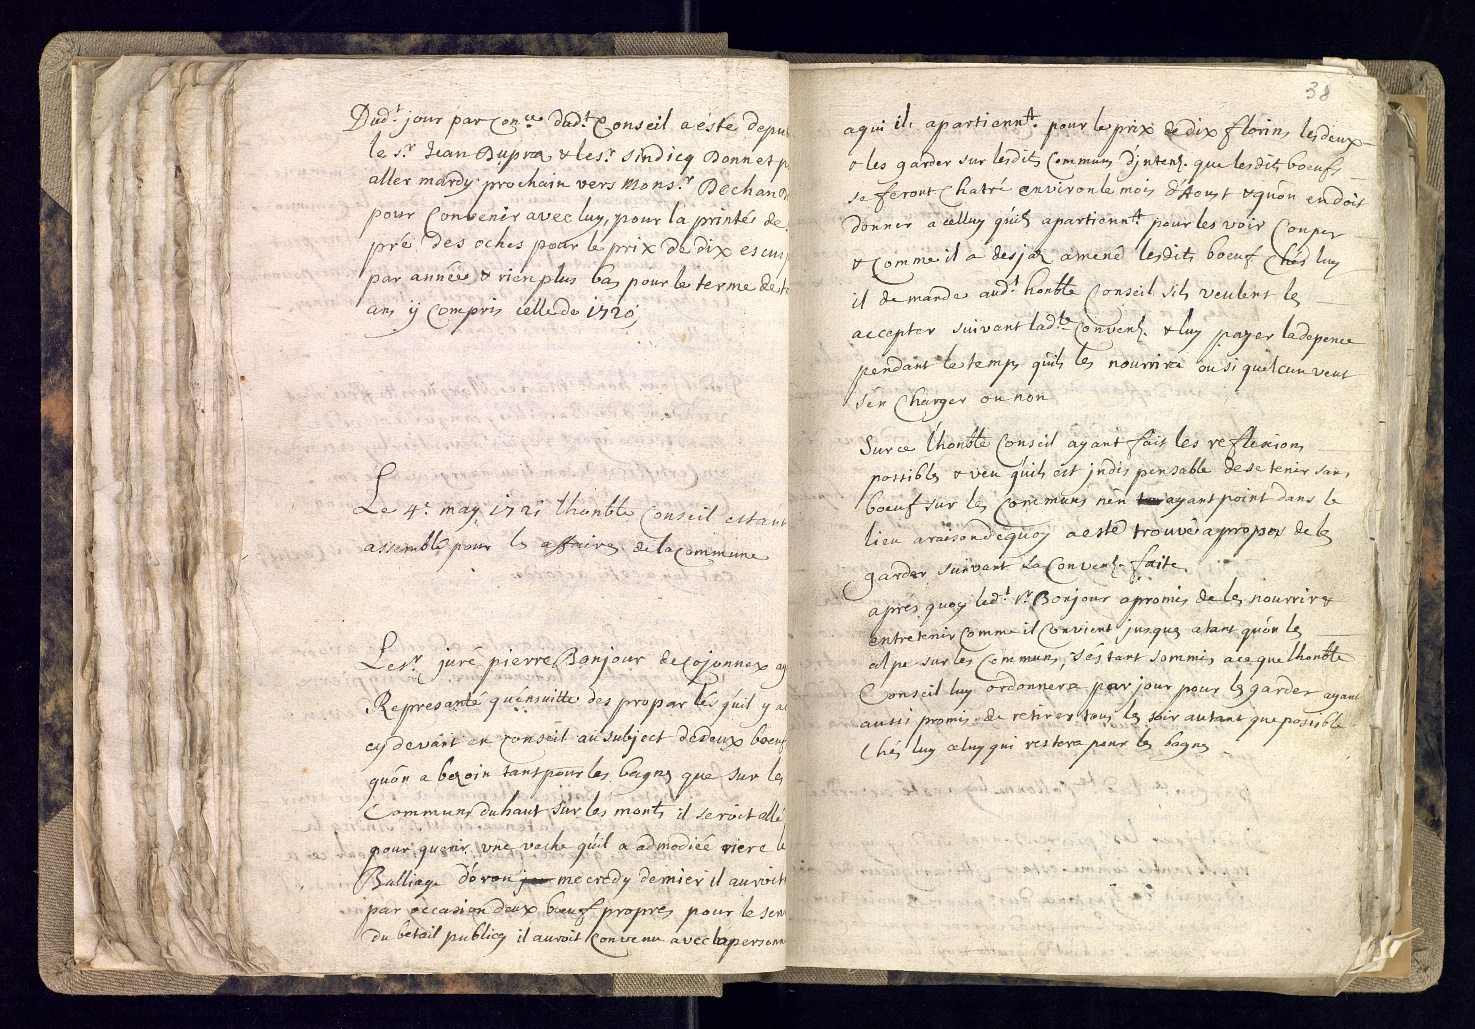 Dud.t jour par Con.ce dud.t Conseil a esté depu
le S.r Jean Dupra & le s.r sindicq Donnet p
aller mardy prochain vers Mons.r Dechan
pour Convenir avec luy, pour la printés de
pré des oches pour le prix de dix escus
par année & rien plus bas pour le terme de
ans ÿ Compris celle de 1720,
Le 4.e may 1721 lhonble Conseil estant
assemblé pour les affaires de la Commune
Le s.r juré pierre Bonjour de Cojonnex ay
Represanté qu'ensuitte des propar lés qu'il y a
cy devant en Conseil au subject de deux boeuf
qu'on a bezoin tant pour les bagnes que sur les
Communs du haut sur les monts il seroit allé
pour querir vne vache qu'il a admodiée riere le
Balliage d'oron mecredy dernier il auroit
par occasion deux boeuf propres pour le ser
du betail publicq il auroit Convenu avec la personn
38
a qui ils apartienn.t pour le prix de dix florins les deux
& les garder sur lesdits Communs d'jnten. que lesdits boeufs
se feront Chatré environ le mois d'Aoust & qu'on en doit
donner a celluy qu'ils apartienn.t pour les voir Couper
& Comme il a desja amené lesdits boeuf Chés luy
il demande aud.t honble Conseil sils veulent les
accepter suivant lad.te Conven. & luy payer la depence
pendant le temps qu'il les nourrira ou si quelcun veut
s'en Charger ou non
Sur ce lhonble Conseil ayant fait les reflexions
possibles & veu qu'il est jndispensable de se tenir sans
boeuf sur les Communs n'en ayant point dans le
lieu a raison de quoy a esté trouvé a propos de les
garder suivant la Conven. faite
aprés quoy led.t S.r Bonjour a promis de les nourrir &
entretenir comme il Convient jusques a tant qu'on les
alpe sur les Communs, s'estant sommis a ce que lhonble
Conseil luy ordonnera par jour pour les garder ayant
aussi promis de retirer tous les soir autant que possible
Chés luy celuy qui restera pour les bagnes